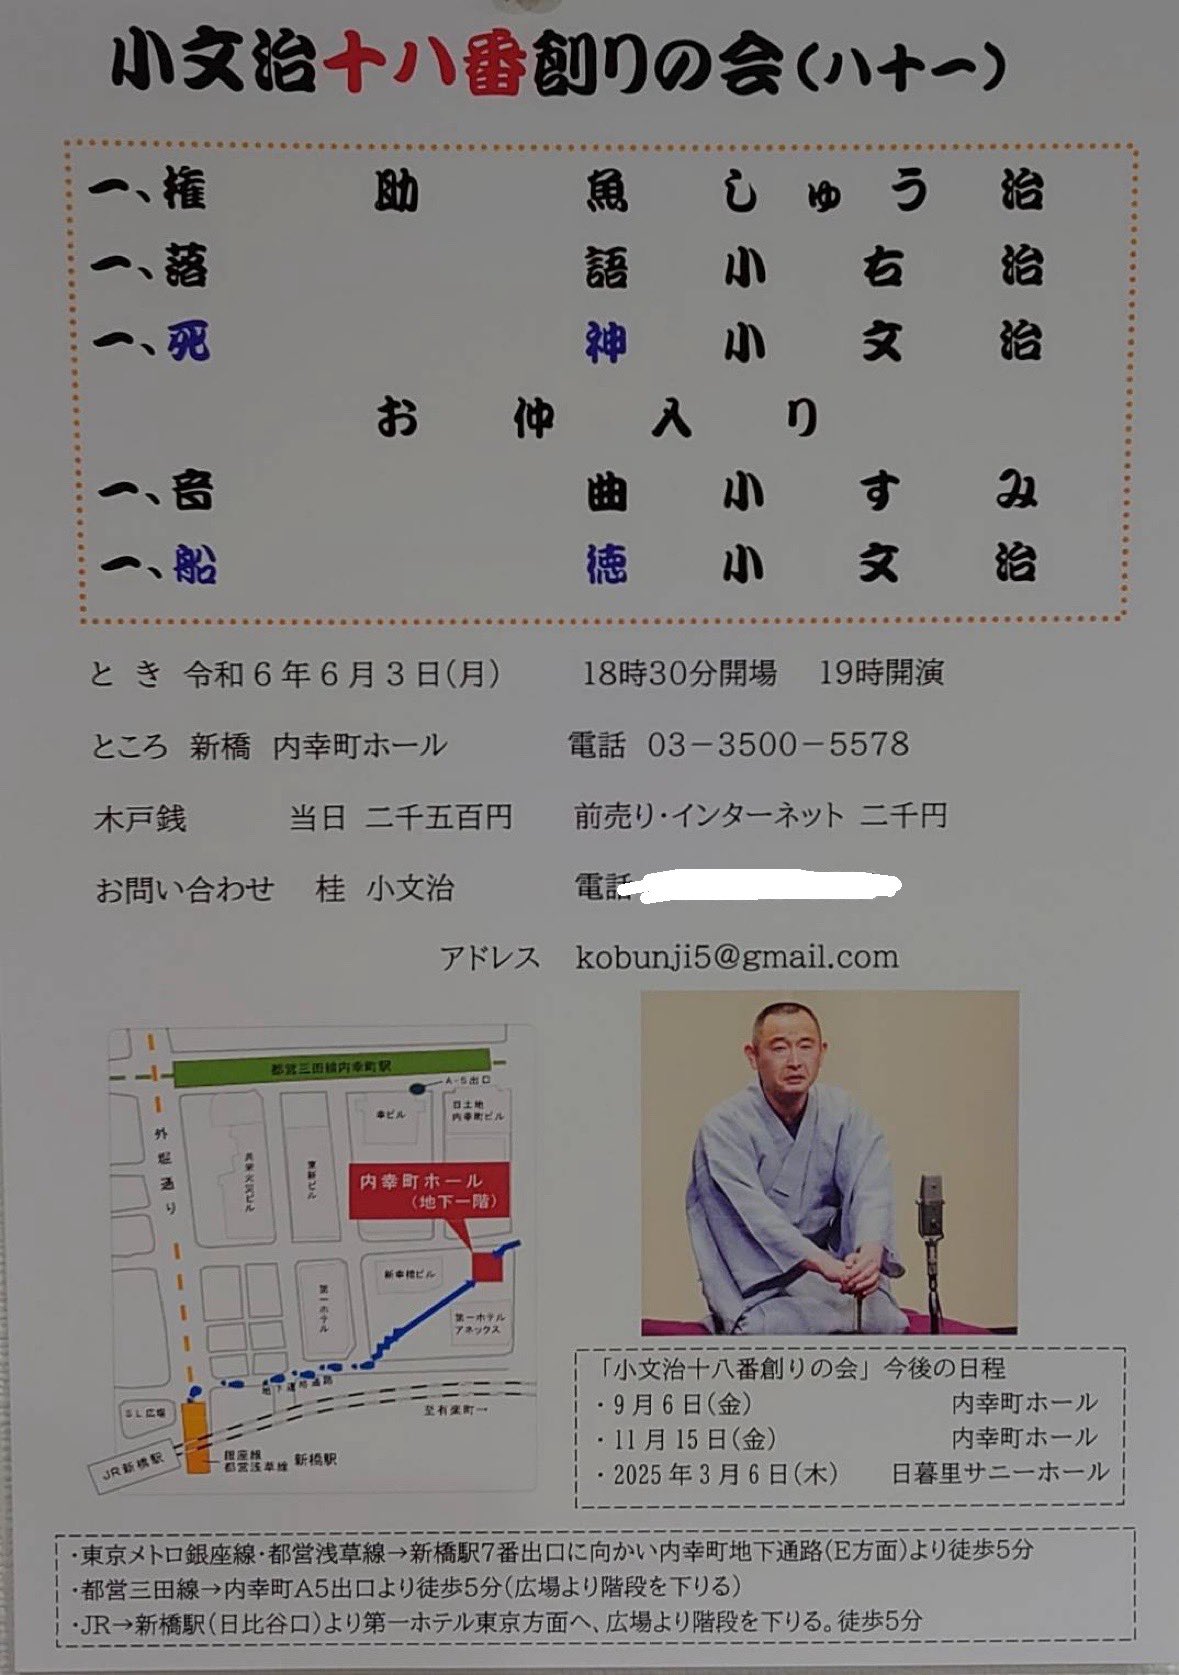 小文治十八番創りの会(八十一)
一、権助魚 しゅう治
一、落語 小右治
一、死神 小文治
お仲入り
一、音曲 小すみ
一、船徳 小文治
とき 令和6年6月3日(月) 18時30分開場 19時開演
ところ 新橋 内幸町ホール 電話 03-3500-5578
木戸銭 当日 二千五百円 前売り・インターネット 二千円
お問い合わせ 桂 小文治 電話
アドレス kobunji5@gmail.com
都営三田線内幸町駅
A-5出口
幸ビル
日土地
内幸町ビル
外堀通り
共栄火災ビル
東新ビル
内幸町ホール
(地下一階)
新幸橋ビル
第一ホテル
第一ホテル
アネックス
地下連絡通路
SL広場
至有楽町→
JR新橋駅
銀座線
都営浅草線 新橋駅
「小文治十八番創りの会」今後の日程
・9月6日(金) 内幸町ホール
・11月15日(金) 内幸町ホール
・2025年3月6日(木) 日暮里サニーホール
・東京メトロ銀座線・都営浅草線→新橋駅7番出口に向かい内幸町地下通路(E方面)より徒歩5分
・都営三田線→内幸町A5出口より徒歩5分(広場より階段を下りる)
・JR→新橋駅(日比谷口)より第一ホテル東京方面へ、広場より階段を下りる。徒歩5分